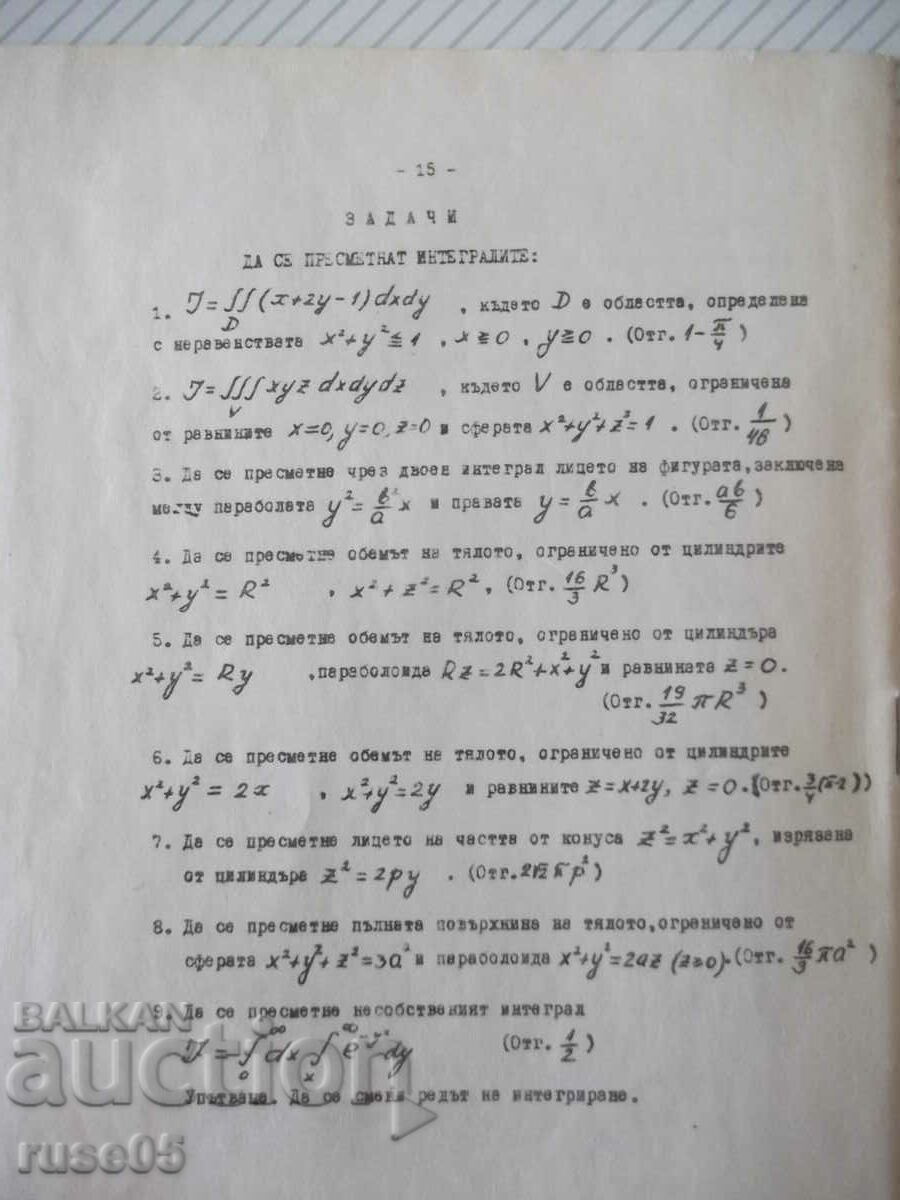 - 15 -
ЗАДАЧИ
ДА СЕ ПРЕСМЕТНАТ ИНТЕГРАЛИТЕ:
1. J=∬(x+2y-1)dxdy , където D е областта, определена
D
с неравенствата x²+y²≦1 , x≧0 , y≧0 . (Отг. 1-π/4)
2. J=∭xyz dxdydz , където V е областта, ограничена
V
от равнините x=0, y=0, z=0 и сферата x²+y²+z²=1 . (Отг. 1/48)
3. Да се пресметне чрез двоен интеграл лицето на фигурата,заключена
между параболата y²=b²/a x и правата y=b/a x . (Отг. ab/6)
4. Да се пресметне обемът на тялото, ограничено от цилиндрите
x²+y²=R² , x²+z²=R², (Отг. 16/3 R³)
5. Да се пресметне обемът на тялото, ограничено от цилиндъра
x²+y²=Ry ,параболоида Rz=2R²+x²+y² и равнината z=0.
(Отг. 19/32 πR³)
6. Да се пресметне обемът на тялото, ограничено от цилиндрите
x²+y²=2x , x²+y²=2y и равнините z=x+2y, z=0. (Отг. 3/4(π-2))
7. Да се пресметне лицето на частта от конуса z²=x²+y², изрязана
от цилиндъра z²=2py . (Отг. 2√2 πp²)
8. Да се пресметне пълната повърхнина на тялото,ограничено от
сферата x²+y²+z²=3a² и параболоида x²+y²=2az (z≥0). (Отг. 16/3 πa²)
9. Да се пресметне несобственият интеграл
J=∫₀^∞ dx ∫ₓ^∞ e^(-y²) dy (Отг. 1/2)
Упътване. Да се смени редът на интегриране.
BALKAN
auction
ruse05